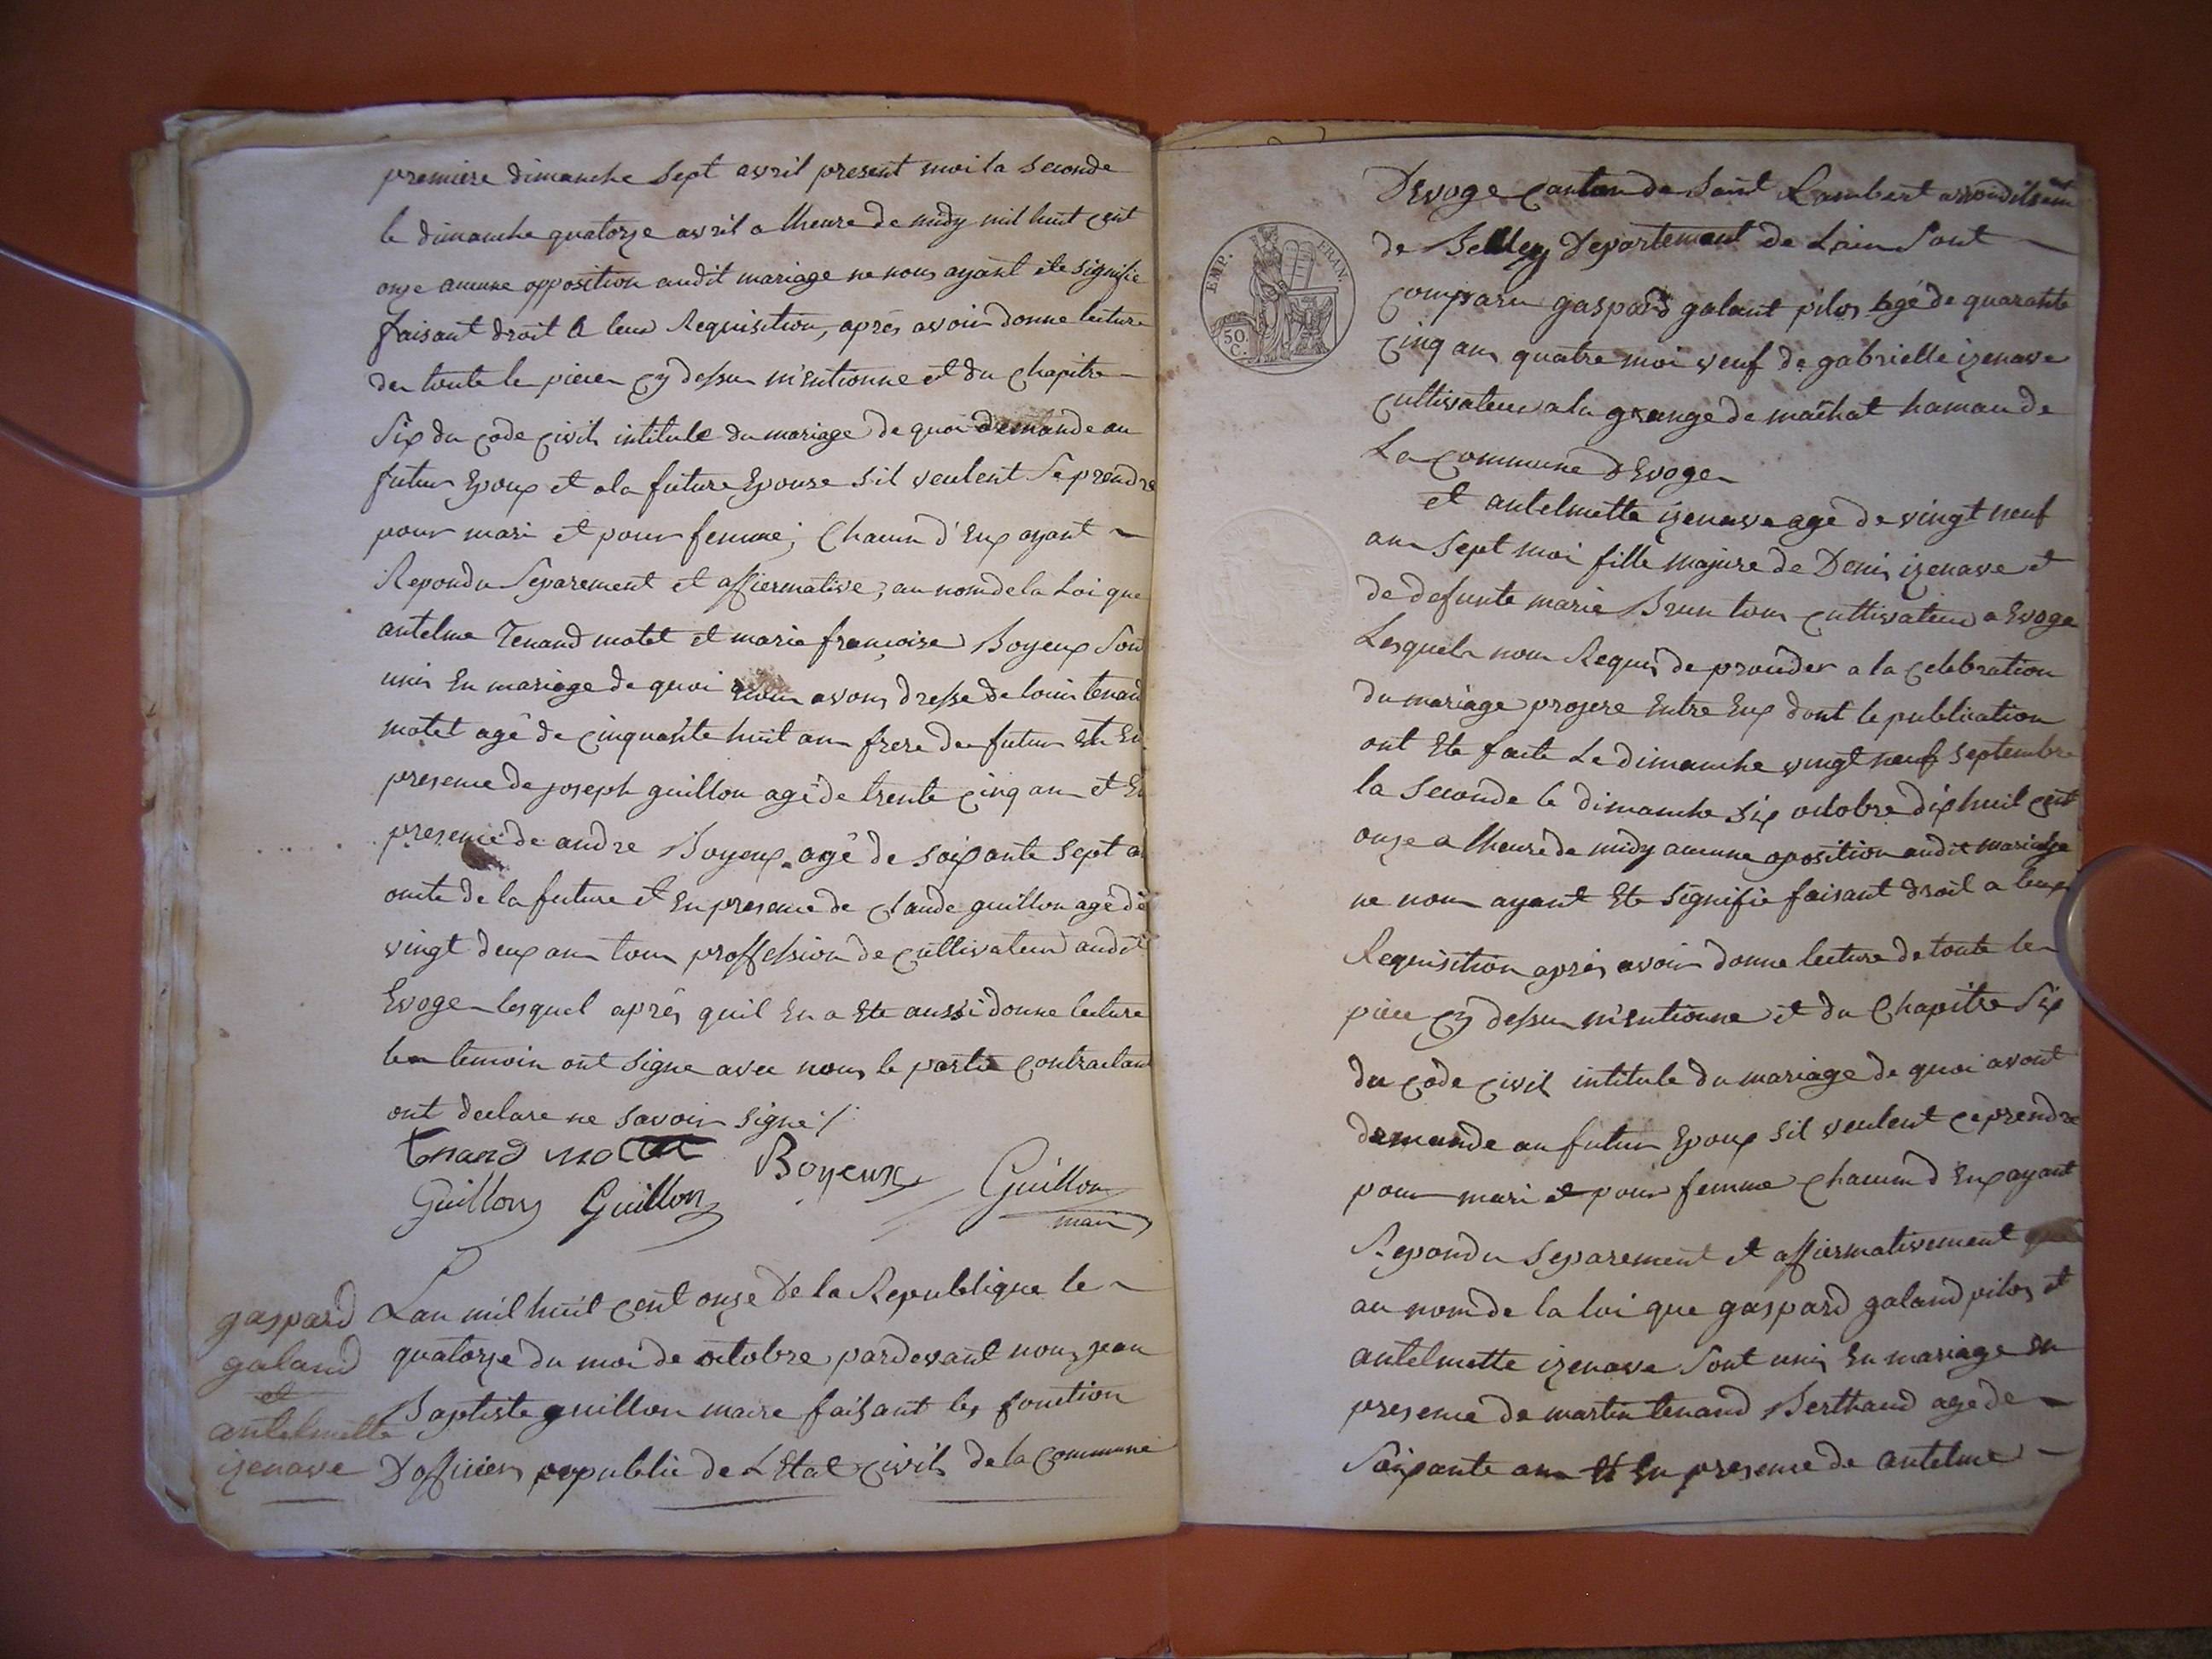 premiere dimanche sept avril present moi la seconde
le dimanche quatorze avril a lheure de midy mil huit cent
onze aucune opposition audit mariage ne nous ayant ete signifie
faisant droit a leur Requisition, aprés avoir donne lecture
de toute le piece cy dessu m'entionne et du chapitre
Six du code civil intitule du mariage de quoi demande au
futur Epoux et a la future Epouse s il veulent Se prendre
pour mari et pour femme; Chacun d'Eux ayant
Repondu Separement et affiermative, au nom de la Loi que
antelme Tenand motet et marie francoise Boyeux Sont
unis En mariage de quoi nous avons dresse de louis tenand
motet agé de cinquante huit ans frere du futur et En
presence de joseph guillon agé de trente cinq ans et En
presence de andre Boyeux agé de soixante sept a
oncle de la future et En presence de claude guillon agé de
vingt deux ans tous proffession de cultivateur audit
Evoge lesquel aprés quil En a Ete aussi donne lecture
les temoin ont signe avec nous le partie contractant
ont declare ne savoir signé /
Tenand motet
Boyeux
Guillon Guillon
Guillon
maire
gaspard
galand
et
antelmette
izenave
Lan mil huit cent onze de la Republique le
quatorze du moi de octobre pardevant nous jean
Baptiste guillon maire faisant les fonction
D officier public de L Etat civils de la commune
D Evoge Canton de Saint Rambert arrondissem ent
de Belley Departement de Lain Sont
comparu gaspard galant pilos agé de quarante
cinq ans quatre moi veuf de gabrielle izenave
cultivateur a la grange de machat hamau de
La Commune d Evoge
et antelmette izenave agé de vingt neuf
ans sept moi fille majure de Denis izenave et
de defunte marie Brun tous cultivateur a Evoge
Lesquels nous Requis de proceder a la celebration
du mariage projere Entre Eux dont le publication
ont Ete faite Le dimanche vingt neuf septembre
la Seconde le dimanche six octobre dix huit cent
onze a lheure de midy aucune oposition audit mariage
ne nous ayant Ete signifie faisant droit a leur
Requisition aprés avoir donne lecture de toute le
piece cy dessu m'entionne et du Chapitre Six
du code civil intitule du mariage de quoi avont
demande au futur Epoux sil veulent ce prendre
pour mari et pour femme chacun d Eux ayant
Repondu Separement et affiermativement
au nom de la loi que gaspard galand pilos et
antelmette izenave Sont unis En mariage en
presence de martin tenand Berthand age de
Soixante ans et En presence de antelme